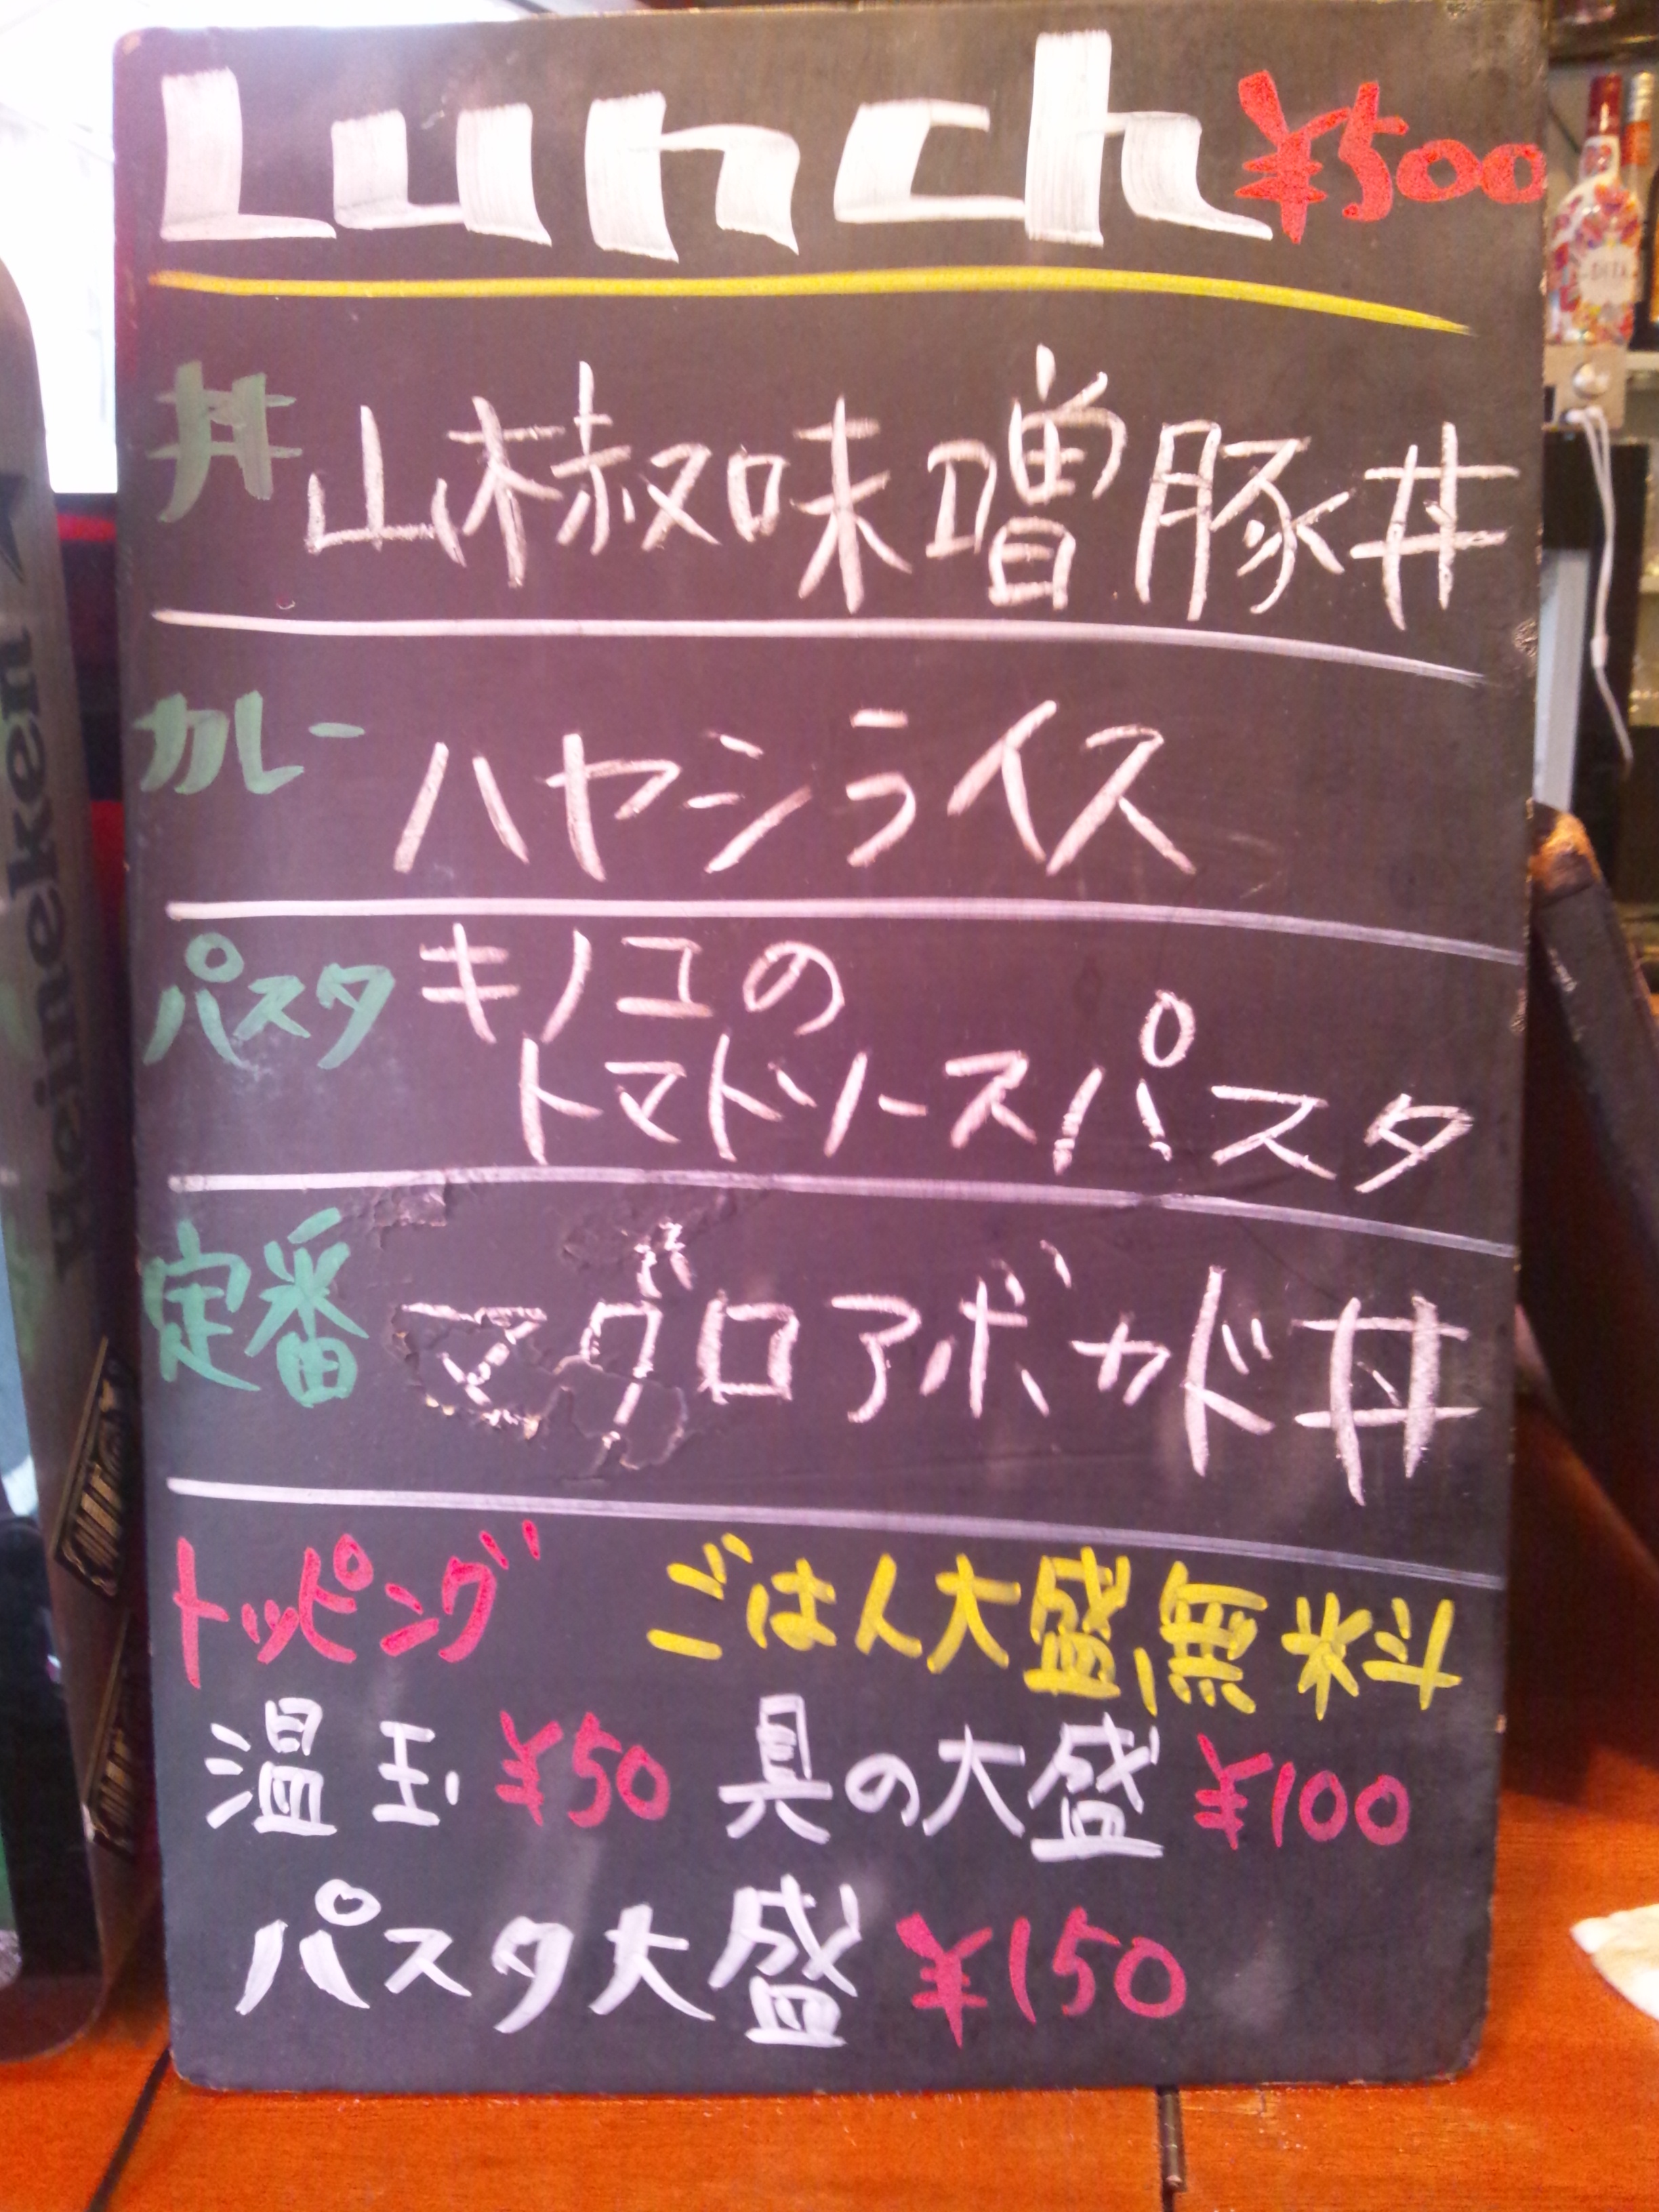 Lunch ¥500
丼 山椒味噌豚丼
カレー ハヤシライス
パスタ キノコの
トマトソースパスタ
定番 マグロアボカド丼
トッピング ごはん大盛無料
温玉 ¥50 具の大盛 ¥100
パスタ大盛 ¥150
Heineken
DITA